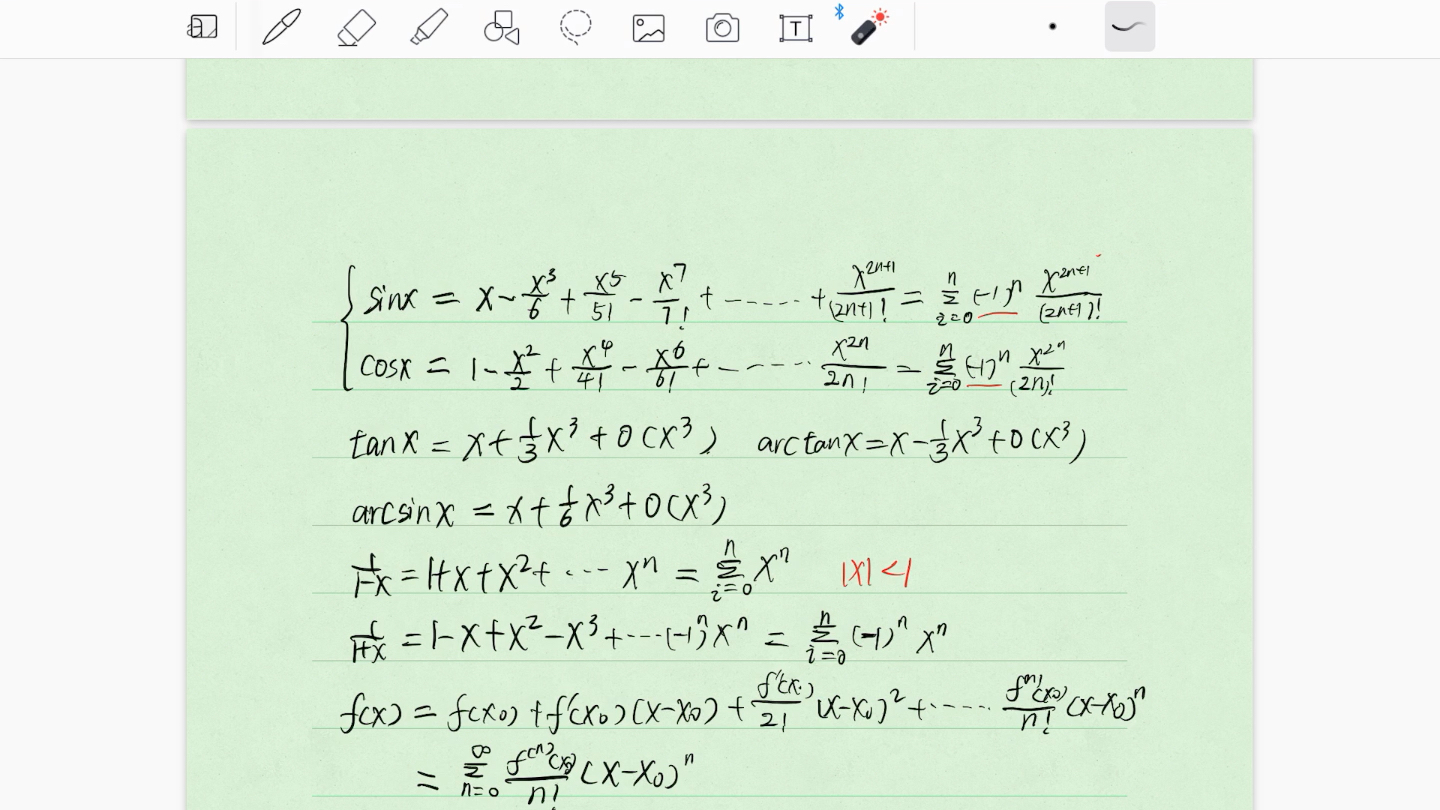 sinx = x - x³/6 + x⁵/5! - x⁷/7! + ------ + x²ⁿ⁺¹/(2n+1)! = Σ_{i=0}^{n} (-1)ⁿ x²ⁿ⁺¹/(2n+1)!
cosx = 1 - x²/2 + x⁴/4! - x⁶/6! + ------ x²ⁿ/2n! = Σ_{i=0}^{n} (-1)ⁿ x²ⁿ/(2n)!
tanx = x + 1/3 x³ + o(x³) arctanx = x - 1/3 x³ + o(x³)
arcsinx = x + 1/6 x³ + o(x³)
1/1-x = 1+x+x²+ ··· xⁿ = Σ_{i=0}^{n} xⁿ |x|<1
1/1+x = 1-x+x²-x³+···(-1)ⁿxⁿ = Σ_{i=0}^{n} (-1)ⁿ xⁿ
f(x) = f(x₀) + f'(x₀)(x-x₀) + f''(x₀)/2! (x-x₀)² + ------ f⁽ⁿ⁾(x₀)/n! (x-x₀)ⁿ
= Σ_{n=0}^{∞} f⁽ⁿ⁾(x₀)/n! (x-x₀)ⁿ